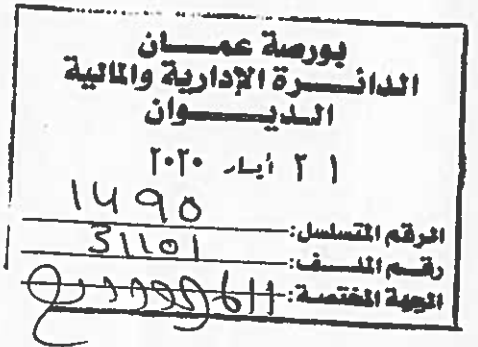 بورصة عمـــان
الدائـــرة الإدارية والمالية
الـديـــــوان
٢١ أيـار ٢٠٢٠
الرقم المتسلسل: 1490
رقـــم الملـــف: 31101
الجهة المختصة: